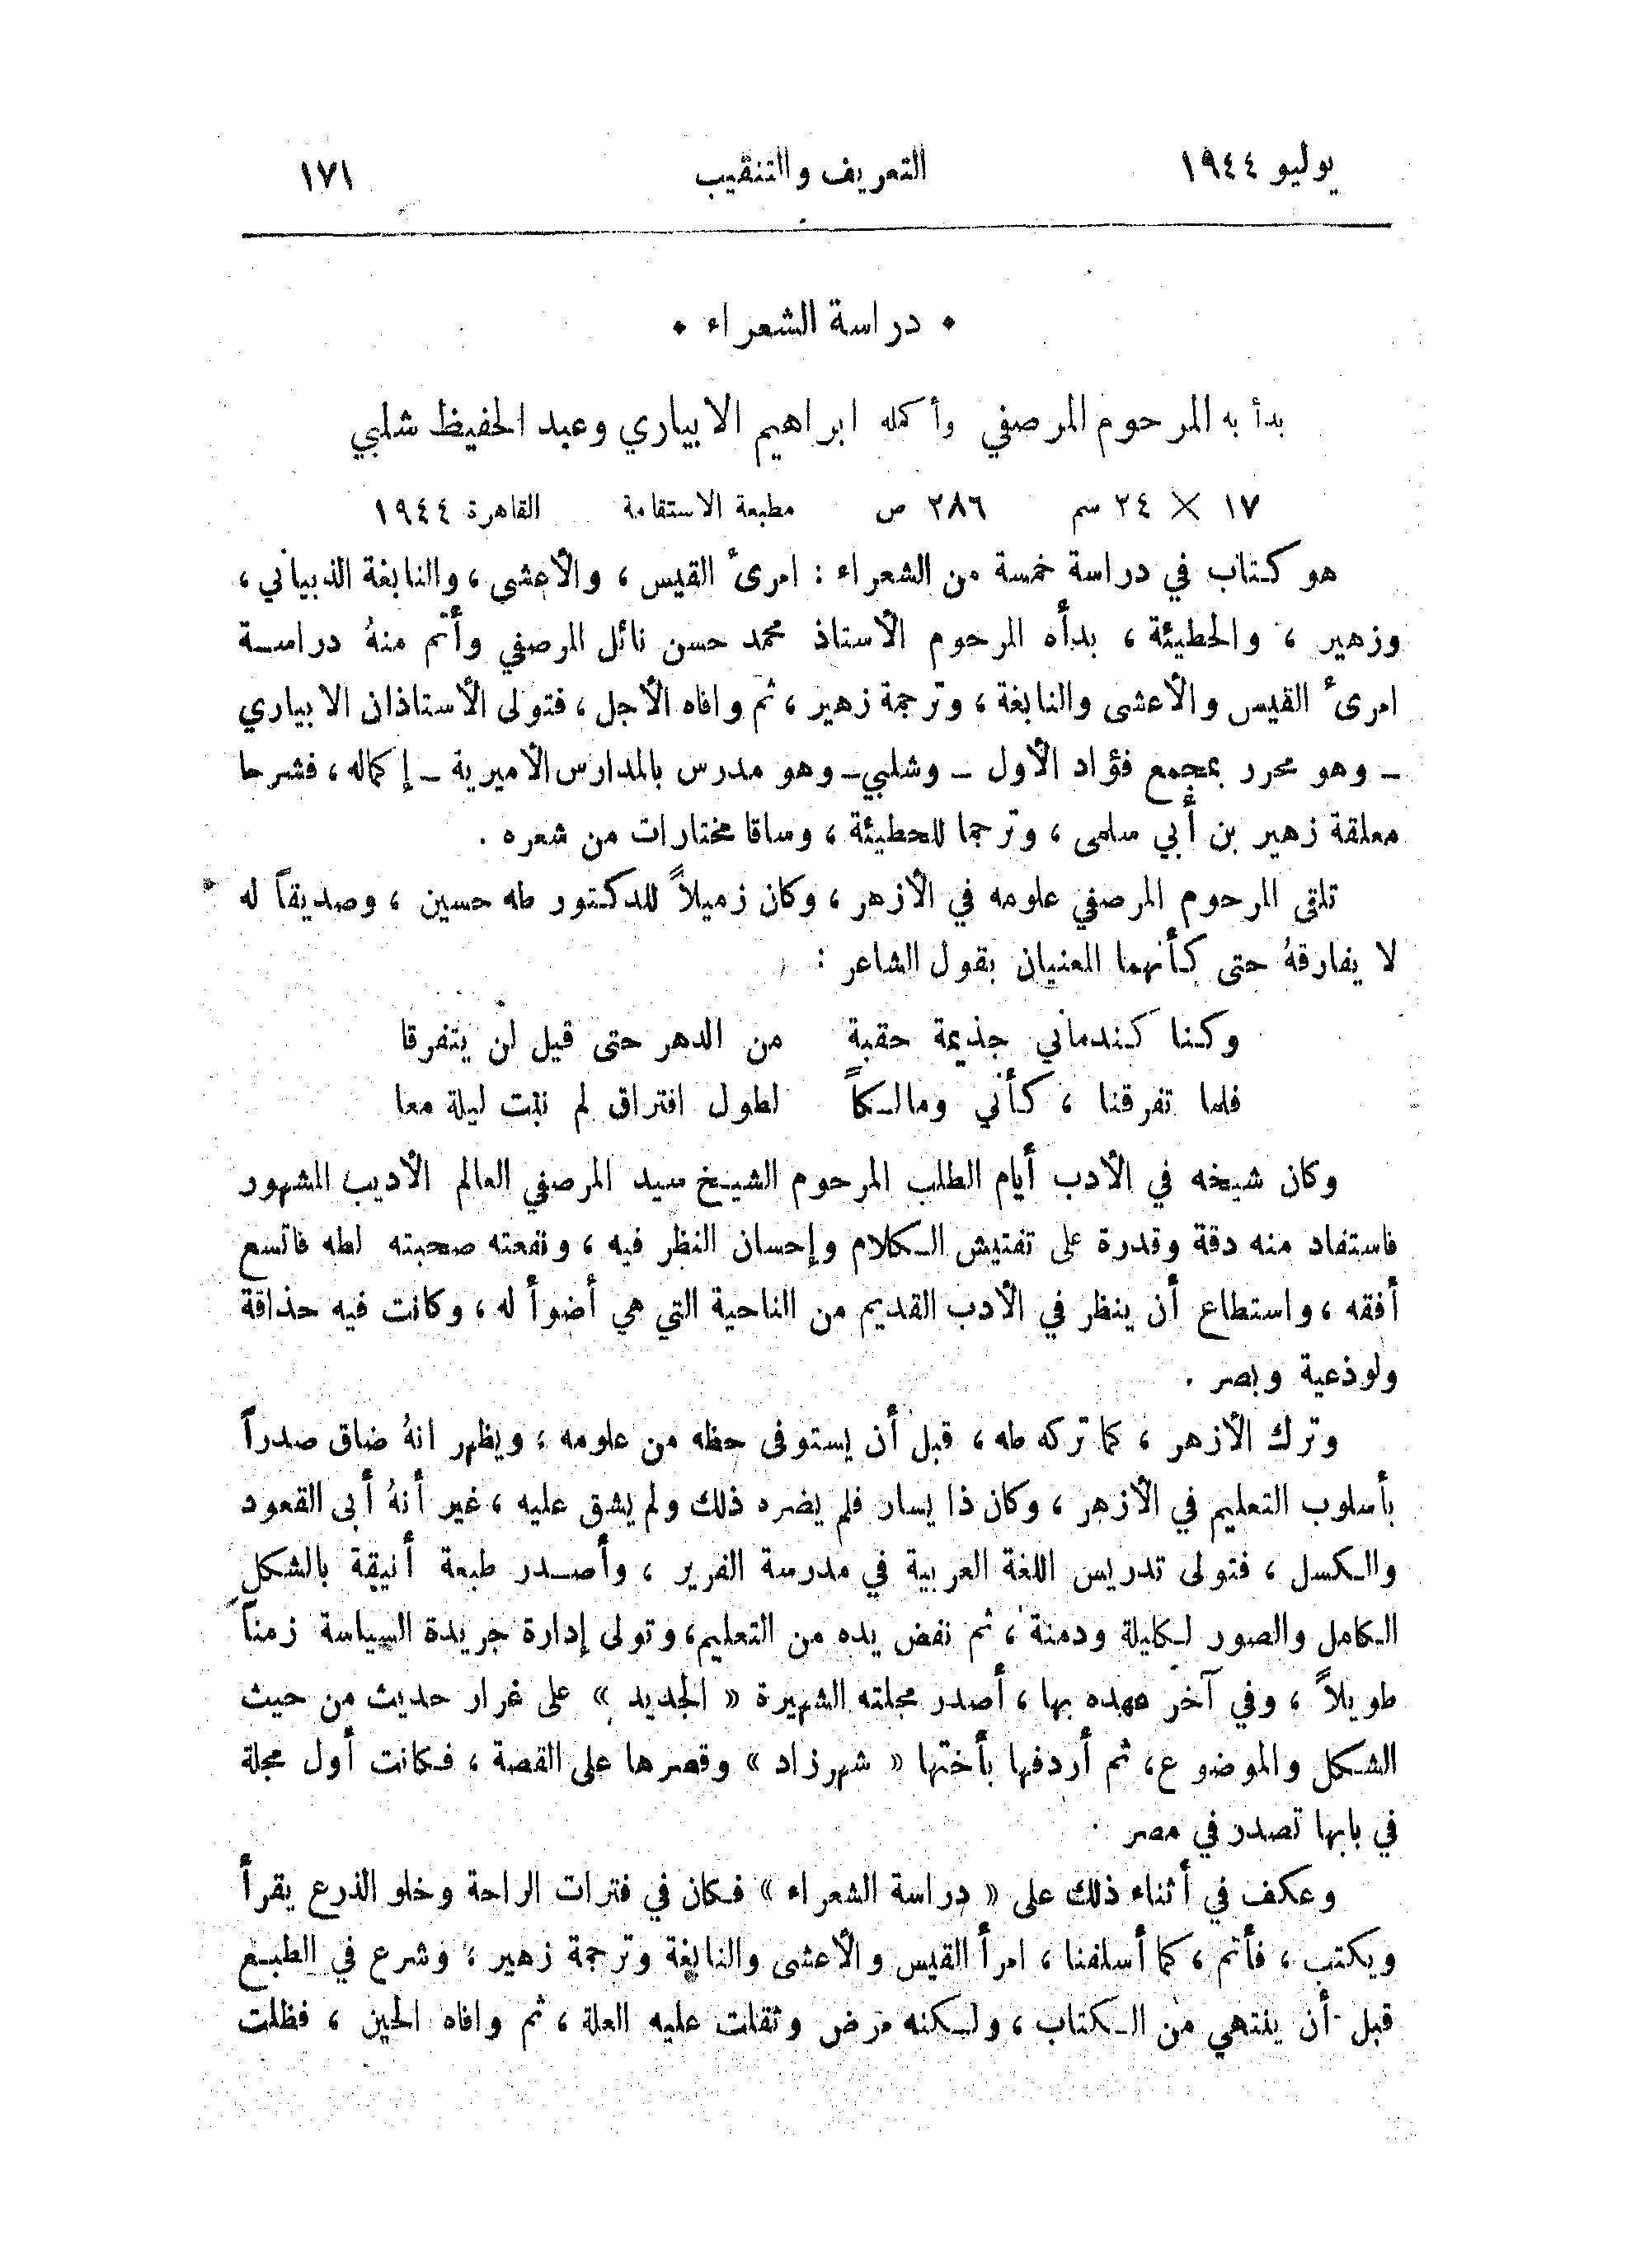 يوليو ١٩٤٤ التعريف والتنقيب ١٧١
• دراسة الشعراء •
بدأ به المرحوم المرصفي وأكمله ابراهيم الابياري وعبد الحفيظ شلبي
١٧ × ٢٤ سم ٢٨٦ ص مطبعة الاستقامة القاهرة ١٩٤٤
هو كتاب في دراسة خمسة من الشعراء : امرىء القيس ، والأعشى ، والنابغة الذبياني ،
وزهير ، والحطيئة ، بدأه المرحوم الأستاذ محمد حسن نائل المرصفي وأتم منهُ دراسة
امرىء القيس والأعشى والنابغة ، وترجمة زهير ، ثم وافاه الأجل ، فتولى الأستاذان الابياري
ــ وهو محرر بمجمع فؤاد الأول ــ وشلبي ــ وهو مدرس بالمدارس الأميرية ــ إكماله ، فشرحا
معلقة زهير بن أبي سلمى ، وترجما للحطيئة ، وساقا مختارات من شعره .
تلقى المرحوم المرصفي علومه في الأزهر ، وكان زميلاً للدكتور طه حسين ، وصديقاً له
لا يفارقهُ حتى كأنهما المعنيان بقول الشاعر :
وكنا كندماني جذيمة حقبة من الدهر حتى قيل لن يتفرقا
فلما تفرقنا ، كأني ومالكاً لطول افتراق لم نبت ليلة معا
وكان شيخه في الأدب أيام الطلب المرحوم الشيخ سيد المرصفي العالم الأديب المشهور
فاستفاد منه دقة وقدرة على تفتيش الكلام وإحسان النظر فيه ، ونفعته صحبته لطه فاتسع
أفقه ، واستطاع أن ينظر في الأدب القديم من الناحية التي هي أضوأ له ، وكانت فيه حذاقة
ولوذعية وبصر .
وترك الأزهر ، كما تركه طه ، قبل أن يستوفى حظه من علومه ، ويظهر انهُ ضاق صدراً
بأسلوب التعليم في الأزهر ، وكان ذا يسار فلم يضره ذلك ولم يشق عليه ، غير أنهُ أبى القعود
والكسل ، فتولى تدريس اللغة العربية في مدرسة الفرير ، وأصدر طبعة أنيقة بالشكل
الكامل والصور لكليلة ودمنة ، ثم نفض يده من التعليم، وتولى إدارة جريدة السياسة زمناً
طويلاً ، وفي آخر عهده بها ، أصدر مجلته الشهيرة « الجديد » على غرار حديث من حيث
الشكل والموضوع، ثم أردفها بأختها « شهرزاد » وقصرها على القصة ، فكانت أول مجلة
في بابها تصدر في مصر .
وعكف في أثناء ذلك على « دراسة الشعراء » فكان في فترات الراحة وخلو الذرع يقرأ
ويكتب ، فأتم ، كما أسلفنا ، امرأ القيس والأعشى والنابغة وترجمة زهير ، وشرع في الطبع
قبل أن ينتهي من الكتاب ، ولكنه مرض وثقلت عليه العلة ، ثم وافاه الحين ، فظلت